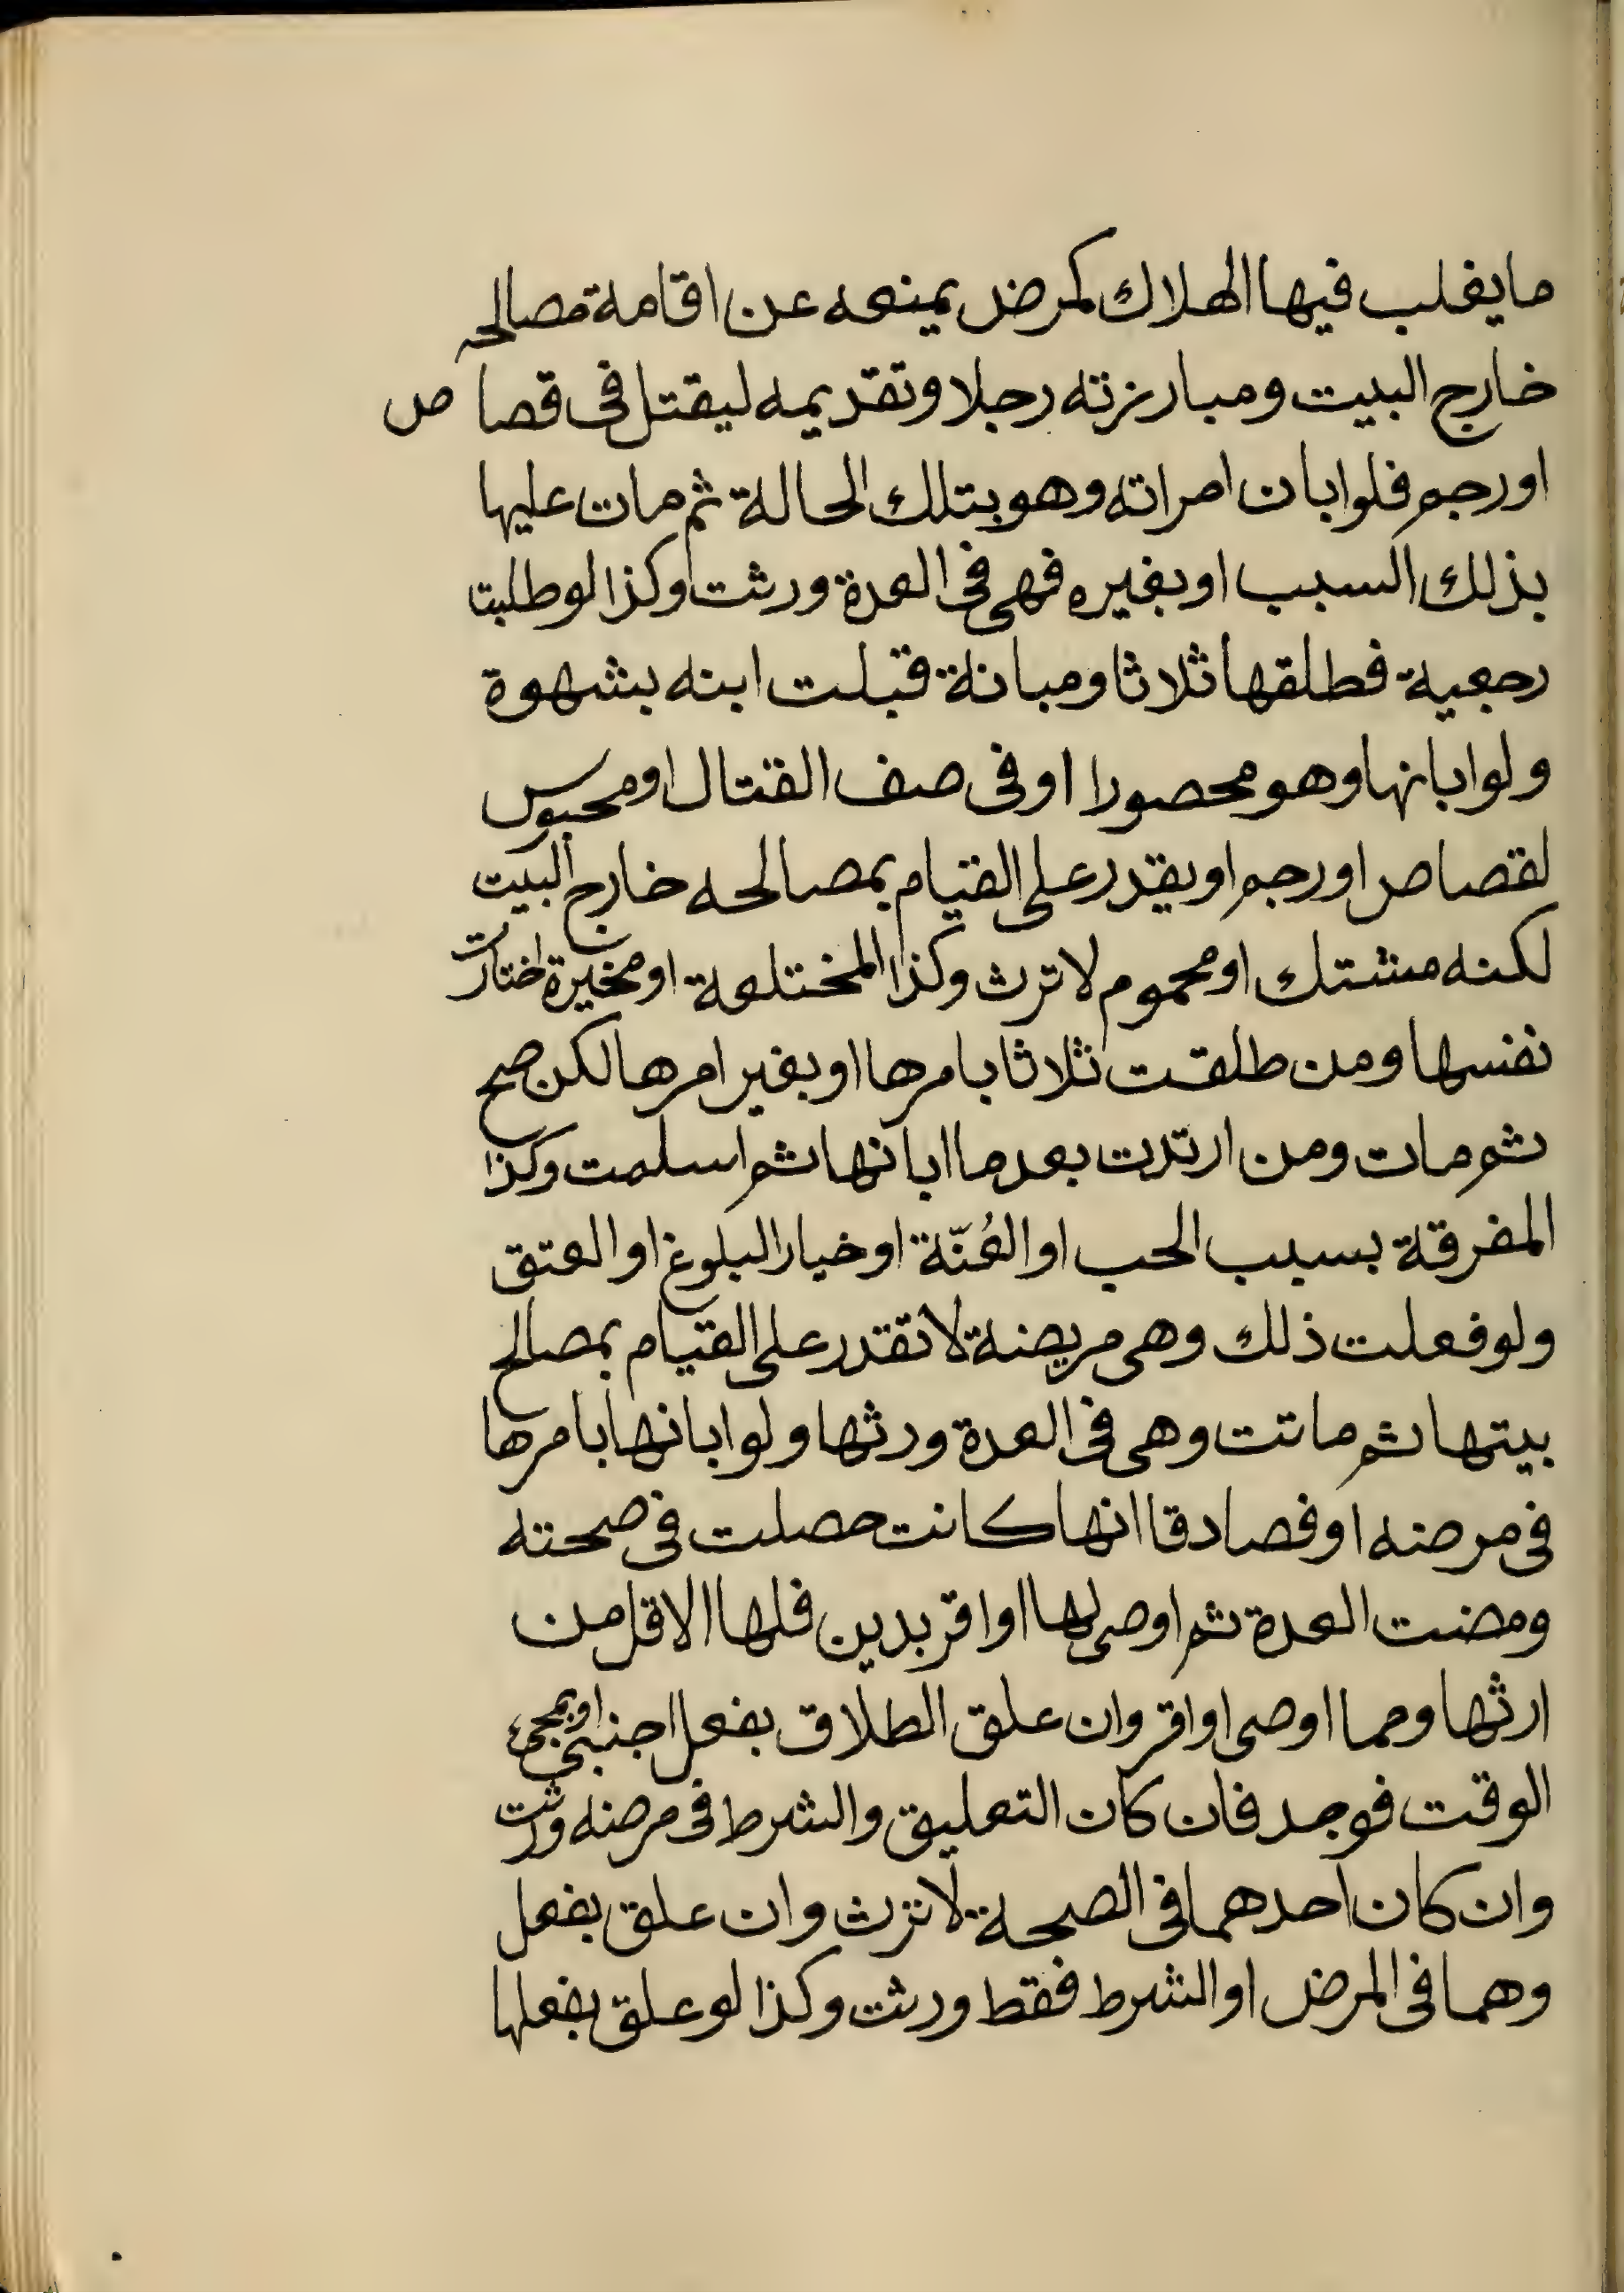 ما يغلب فيها الهلاك كمرض يمنعه عن اقامة مصالحه
خارج البيت ومبارزته رجلا وتقديمه ليقتل فى قصاص
او رجم فلو ابان امراته وهو بتلك الحالة ثم مات عليها
بذلك السبب او بغيره فهى فى العدة ورثت وكذا لو طلبتا
رجعية فطلقها ثلاثا ومبانة قبلت ابنه بشهوة
ولو ابانها وهو محصورا او فى صف القتال او محبوس
لقصاص او رجم او يقدر على القيام بمصالحه خارج البيت
لكنه مشتك او محموم لا ترث وكذا المختلعة او مخيرة اختارت
نفسها ومن طلقت ثلاثا بامرها او بغير امرها لكن صح
ثم مات ومن ارتدت بعدما ابانها ثم اسلمت وكذا
المفرقة بسبب الحب او العُنّة او خيار البلوغ او العتق
ولو فعلت ذلك وهى مريضة لا تقدر على القيام بمصالح
بيتها ثم ماتت وهى فى العدة ورثها ولو ابانها بامرها
فى مرضه او فصادقا انها كانت حصلت فى صحته
ومضت العدة ثم اوصى لها او اقر بدين فلها الاقل من
ارثها ومما اوصى او اقر وان علق الطلاق بفعل اجنبى او بمجىء
الوقت فوجد فان كان التعليق والشرط فى مرضه ورثت
وان كان احدهما فى الصحة لا ترث وان علق بفعل
وهما فى المرض او الشرط فقط ورثت وكذا لو علق بفعلها